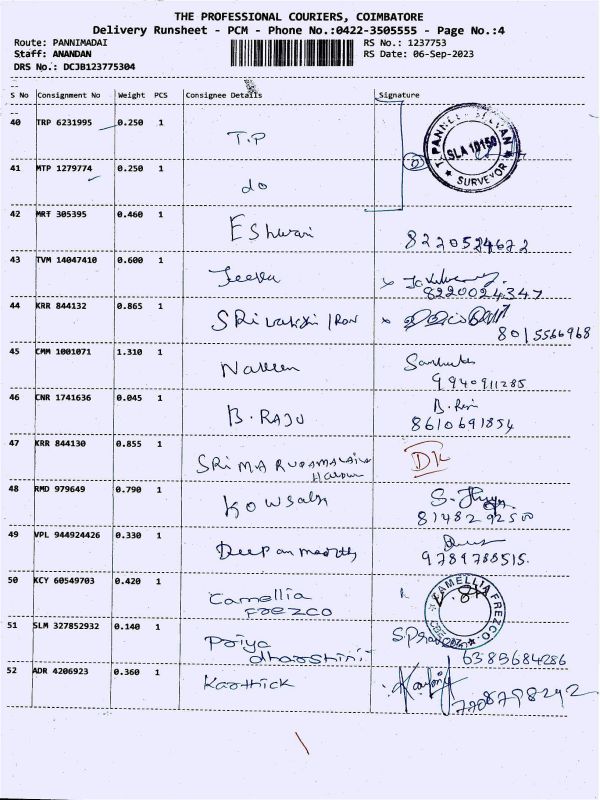 THE PROFESSIONAL COURIERS, COIMBATORE
Delivery Runsheet - PCM - Phone No.:0422-3505555 - Page No.:4
Route: PANNIMADAI RS No.: 1237753
Staff: ANANDAN RS Date: 06-Sep-2023
DRS No.: DCJB123775304
S No Consignment No Weight PCS Consignee Details Signature
40 TRP 6231995 0.250 1 T.P
SLA 10150
SURVEYOR
41 MTP 1279774 0.250 1 do
42 MRT 305395 0.460 1 Eshwari 8220524672
43 TVM 14047410 0.600 1 Jeeva
8220024347
44 KRR 844132 0.865 1
8015566968
45 CMM 1001071 1.310 1 Naveen
9940911285
46 CNR 1741636 0.045 1 B. RAJU
8610691854
47 KRR 844130 0.855 1 DL
48 RMD 979649 0.790 1 Kowsalya
49 VPL 944924426 0.330 1
9789788515.
50 KCY 60549703 0.420 1 Camellia
FREZCO
KAMELLIA FREZCO
51 SLM 327852932 0.140 1 Priya
dharshini
6383684286
52 ADR 4206923 0.360 1 Karthick
7708798292